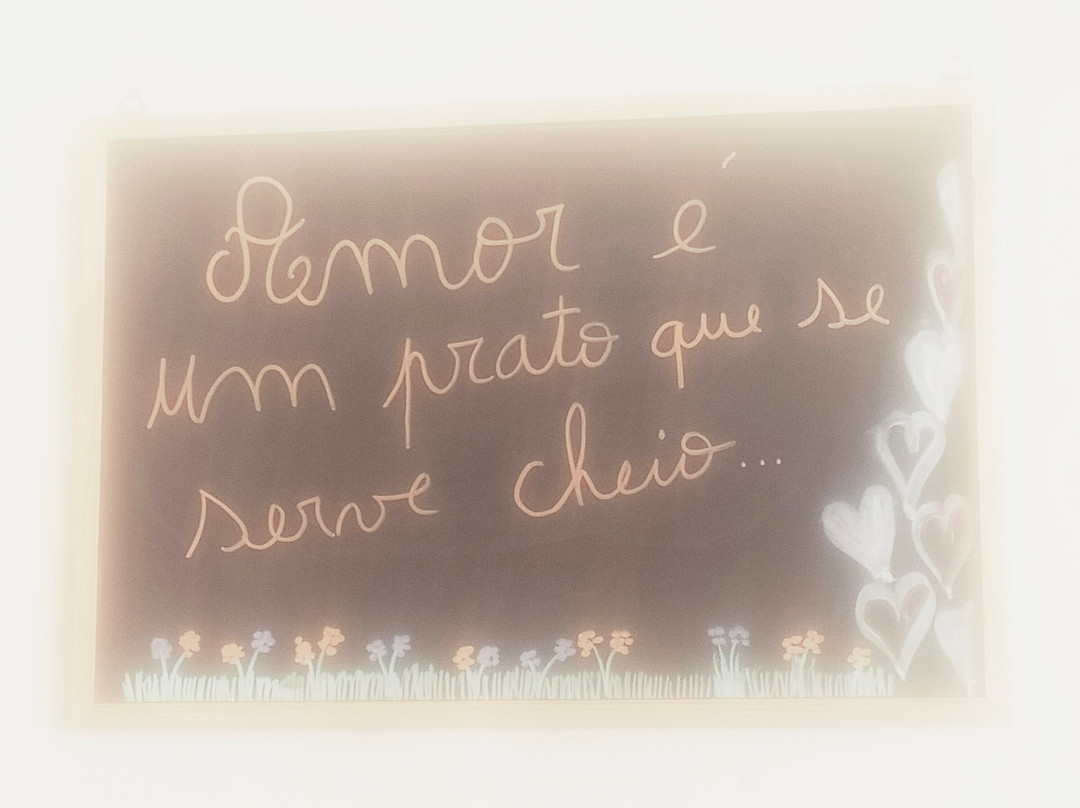 Amor é
um prato que se
serve cheio...